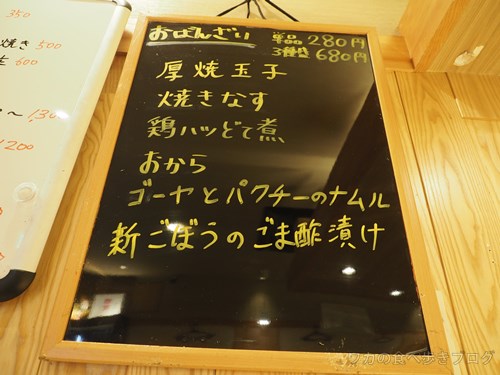 350
焼き 500
600
〜 1,30
1200
おばんざい 単品 280円
3種盛 680円
厚焼玉子
焼きなす
鶏ハツどて煮
おから
ゴーヤとパクチーのナムル
新ごぼうのごま酢漬け
の食べ歩きブログ